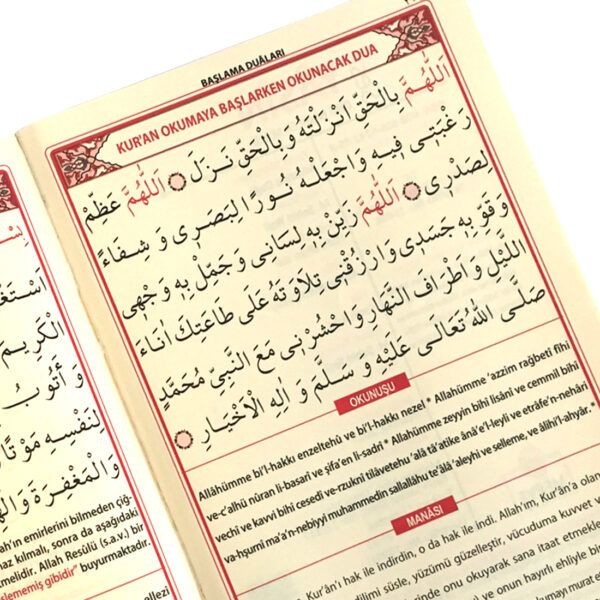 BAŞLAMA DUÂLARI
KUR'AN OKUMAYA BAŞLARKEN OKUNACAK DUA
اَللّٰهُمَّ بِالْحَقِّ اَنْزَلْتَهُ وَبِالْحَقِّ نَزَلَ ۞ اَللّٰهُمَّ عَظِّمْ
رَغْبَتِى فِيهِ وَاجْعَلْهُ نُورًا لِبَصَرِى وَشِفَاءً
لِصَدْرِى ۞ اَللّٰهُمَّ زَيِّنْ بِهِ لِسَانِى وَجَمِّلْ بِهِ وَجْهِى
وَقَوِّ بِهِ جَسَدِى وَارْزُقْنِى تِلَاوَتَهُ عَلَى طَاعَتِكَ اٰنَاءَ
اللَّيْلِ وَاَطْرَافَ النَّهَارِ وَاحْشُرْنِى مَعَ النَّبِىِّ مُحَمَّدٍ
صَلَّى اللّٰهُ تَعَالَى عَلَيْهِ وَسَلَّمَ وَاٰلِهِ الْاَخْيَارِ ۞
OKUNUŞU
Allâhümme bi'l-hakkı enzeltehü ve bi'l-hakkı nezel * Allahümme 'azzim rağbetî fîhi
ve-c'alhü nûran li-basarî ve şifa'en li-sadrî * Allahümme zeyyin bihi lisânî ve cemmil bihî
vechi ve kavvi bihî cesedî ve-rzuknî tilâvetehu 'alâ tâ'atike ânâ'e'l-leyli ve etrâfe'n-nehâri
va-hşurni ma'a'n-nebiyyi muhammedin sallallâhu te'âlâ 'aleyhi ve selleme, ve âlihi'l-ahyâr. *
MANÂSI
Allah'ım, Kur'ân'ı hak ile indirdin, o da hak ile indi. Allah'im, Kur'ân'a olan
dilimi süsle, yüzümü güzelleştir, vücuduma kuvvet v
erinde onu okuyarak sana itaat etmekle
ve onun hayırlı ehliyle bir
اَسْتَغْ
الْكَرِيمَ
وَ اَتُوبُ
لِنَفْسِهِ مَوْتًا
وَالْمَغْفِرَةَ وَالْهِ
ah'ın emirlerini bilmeden çığ-
naz kılmalı, sonra da aşağıdaki
melidir. Allah Resûlü (s.a.v.) bir
işlememiş gibidir" buyurmaktadır.
ellezi